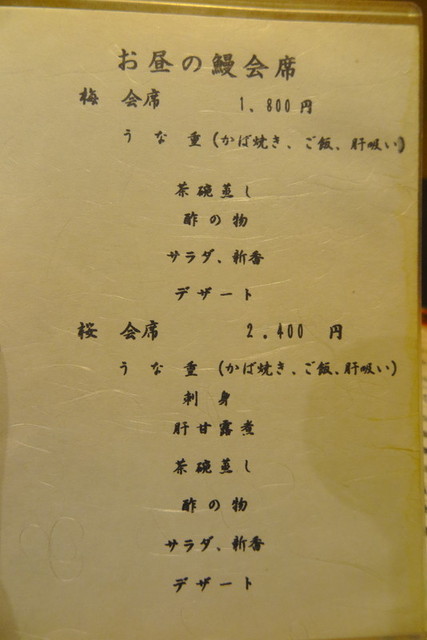 お昼の鰻会席
梅 会席 1,800円
うな重(かば焼き、ご飯、肝吸い)
茶碗蒸し
酢の物
サラダ、新香
デザート
桜 会席 2.400 円
うな重(かば焼き、ご飯、肝吸い)
刺身
肝甘露煮
茶碗蒸し
酢の物
サラダ、新香
デザート